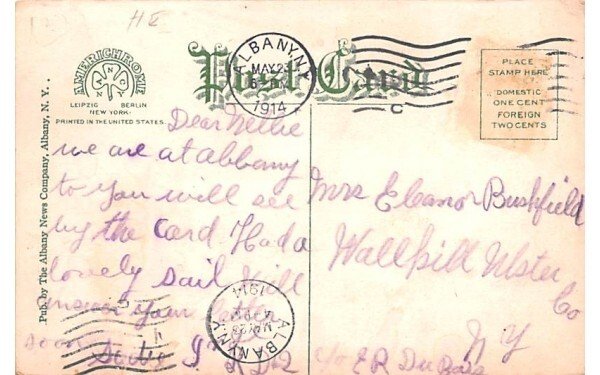 HE
AMERICHROME
A N N Co
LEIPZIG BERLIN
NEW YORK.
PRINTED IN THE UNITED STATES.
Post Card
ALBANY N.Y.
MAY 2
1914
C
PLACE
STAMP HERE
DOMESTIC
ONE CENT
FOREIGN
TWO CENTS
Pub. by The Albany News Company, Albany, N. Y.
Dear Nellie
we are at abbany
to you will see
by the Card Had a
lovely sail Will
your letter
soon
Mrs Eleanor Bushfield
Wallkill Ulster
Co
N Y
c/o E R Du Bois
ALBANY N.Y.
1914